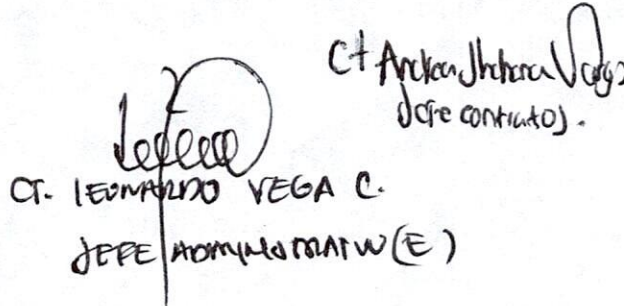 Ct Andrea Jhohana Vargas
Jefe contratos.
CT. LEONARDO VEGA C.
JEFE ADMINISTRATIVO (E)